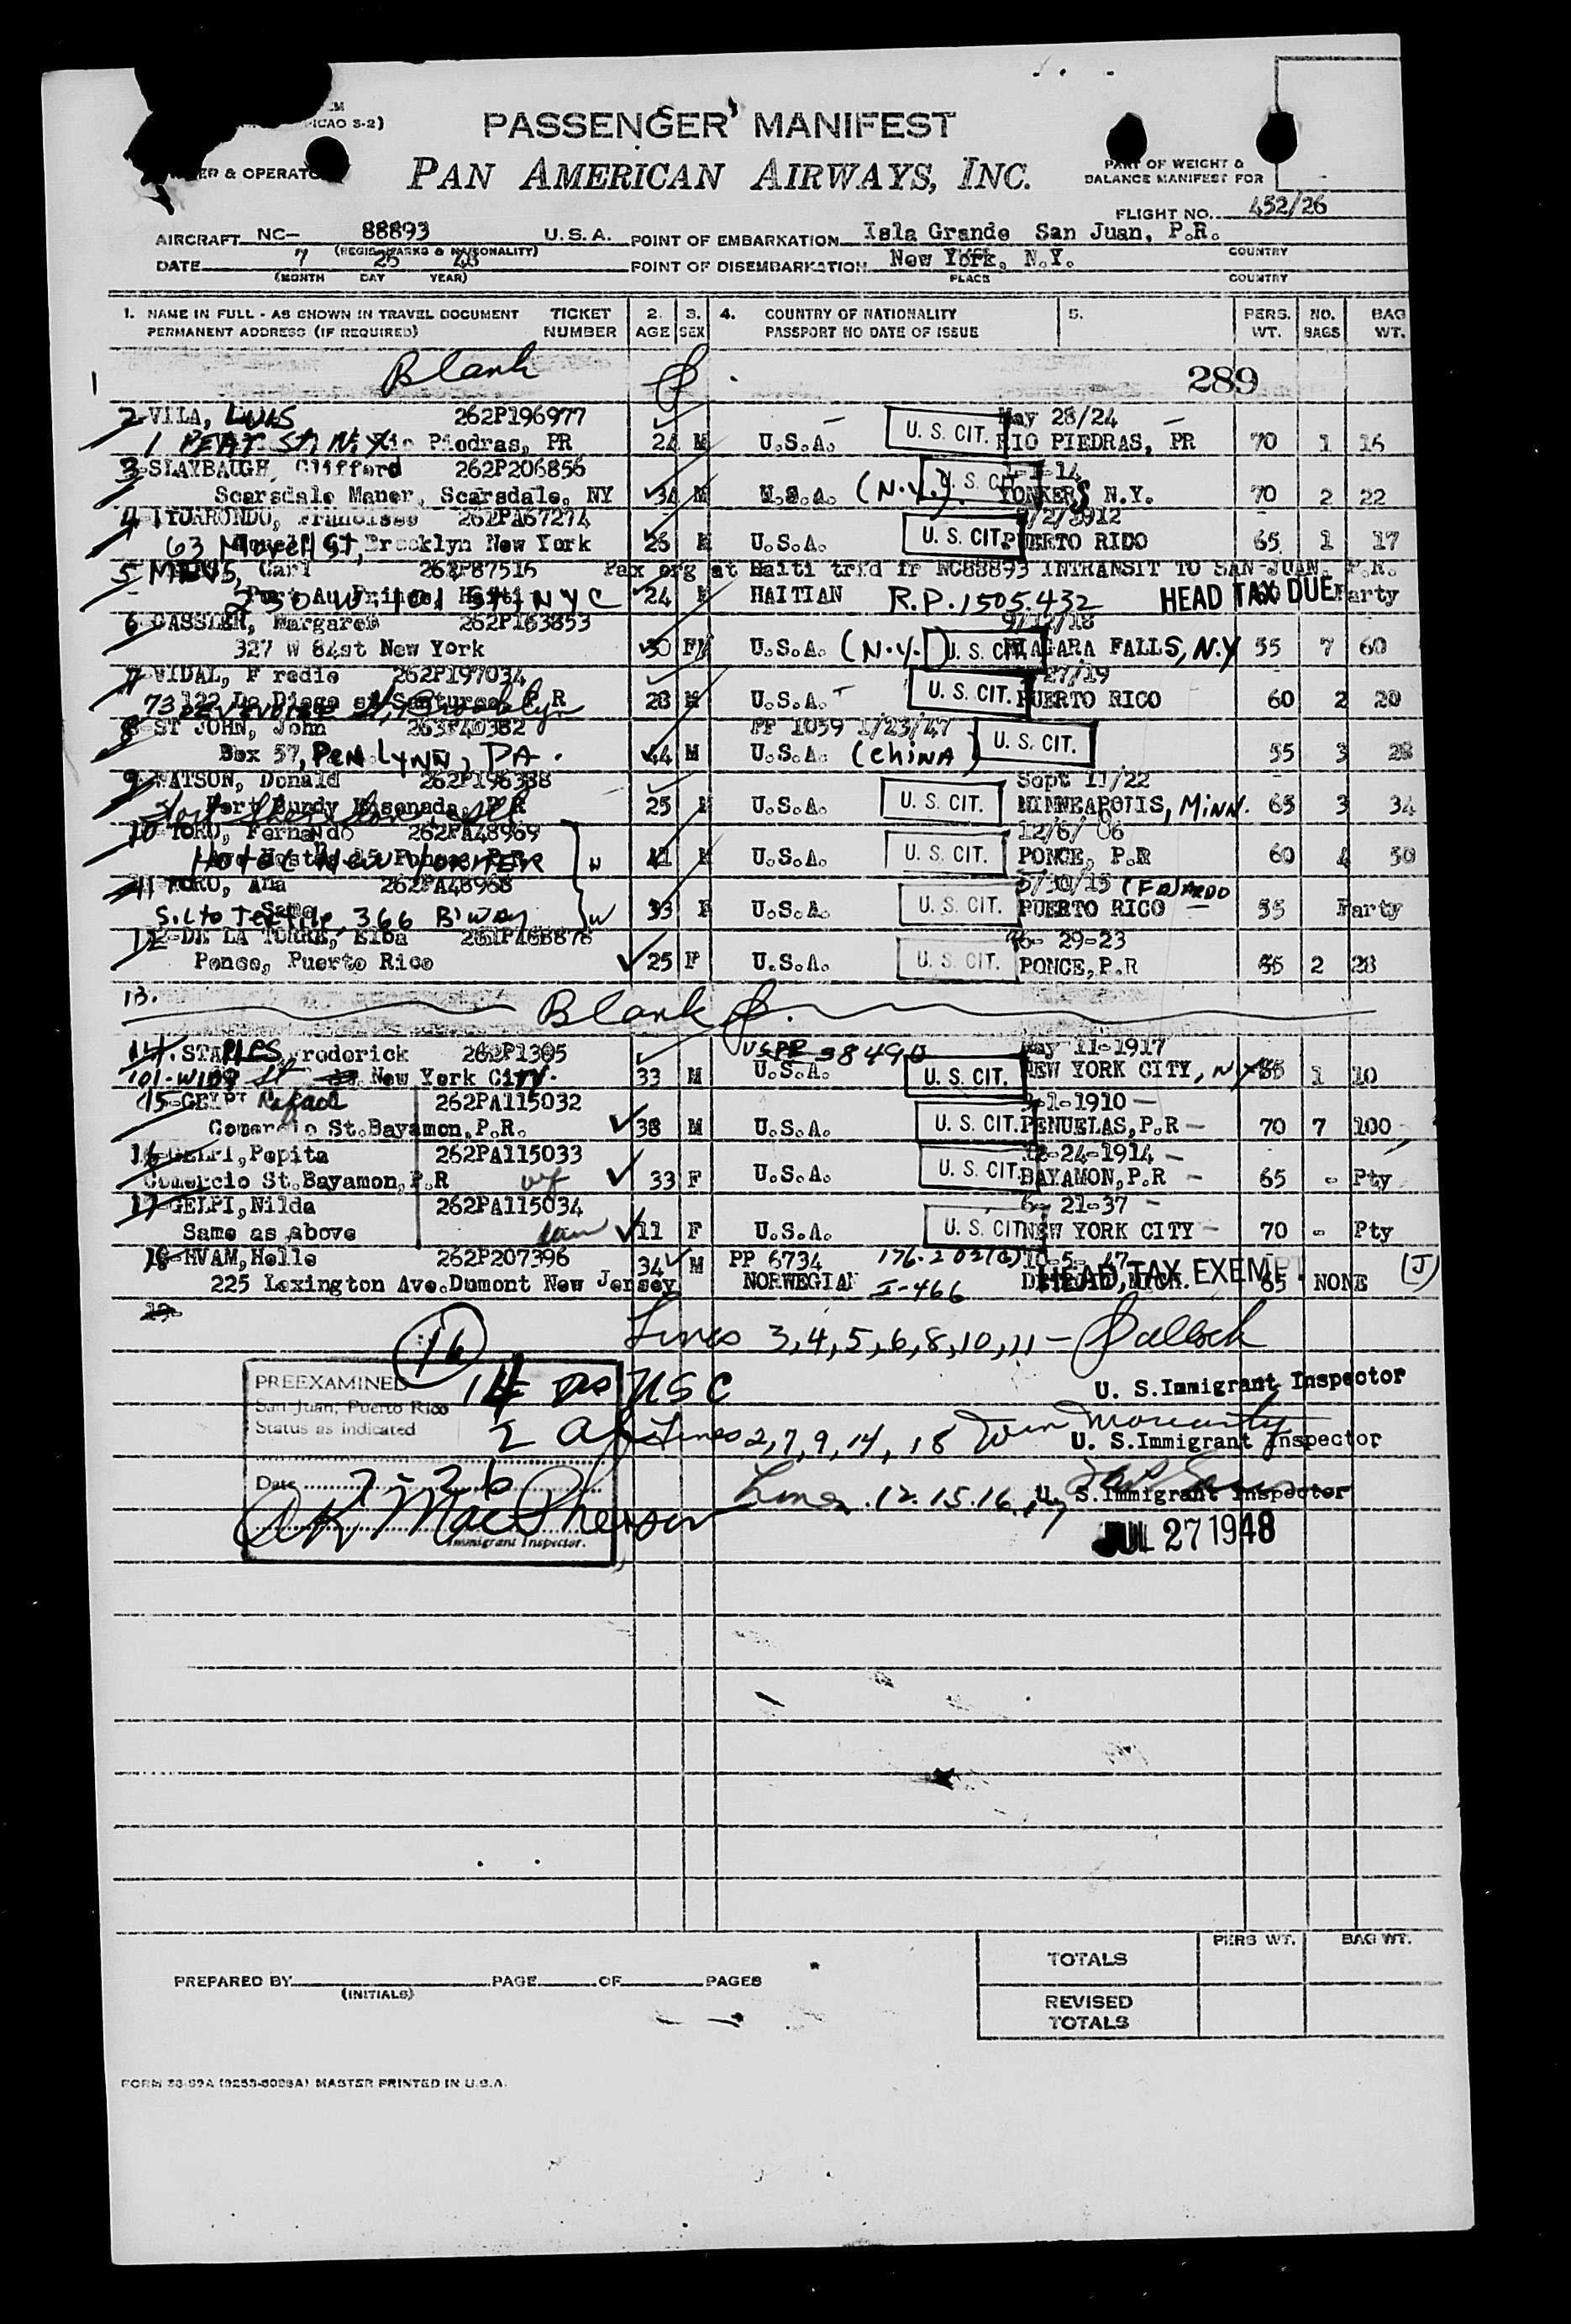 ICAO S-2)
PASSENGER MANIFEST
ER & OPERATO
PAN AMERICAN AIRWAYS, INC.
PART OF WEIGHT &
BALANCE MANIFEST FOR
FLIGHT NO. 452/26
AIRCRAFT NC- 88893 U.S.A. POINT OF EMBARKATION Isla Grande San Juan, P.R.
(REGIS. MARKS & NATIONALITY) COUNTRY
DATE 7 25 48 POINT OF DISEMBARKATION New York, N.Y.
(MONTH DAY YEAR) PLACE COUNTRY
1. NAME IN FULL - AS SHOWN IN TRAVEL DOCUMENT TICKET 2. 3. 4. COUNTRY OF NATIONALITY 5. PERS. NO. BAG
PERMANENT ADDRESS (IF REQUIRED) NUMBER AGE SEX PASSPORT NO DATE OF ISSUE WT. BAGS WT.
1 Blank 289
2-VILA, LUIS 262P196977 May 28/24
Rio Piedras, PR 24 M U.S.A. U. S. CIT. RIO PIEDRAS, PR 70 1 16
3-SLAYBAUGH, Clifford 262P206856
Scarsdale Maner, Scarsdale, NY 34 M U.S.A. (N.Y.). U. S. CIT. YONKERS N.Y. 70 2 22
4-ITURRONDO, Francisco 262PA67274
63 St, Brooklyn New York 26 M U.S.A. U. S. CIT. PUERTO RICO 65 1 17
5 MEVS, Carl 262P87516 Pax org at Haiti trfd fr NC88893 INTRANSIT TO SAN JUAN, P.R.
Port Au Prince, Haiti 230 W. 101 St, NYC 24 M HAITIAN R.P. 1505432 HEAD TAX DUE Party
6 GASSLER, Margaret 262P163853 9/12/18
327 W 84st New York 30 F U.S.A. (N.Y.) U. S. CIT. NIAGARA FALLS, N.Y 55 7 60
7 VIDAL, Fredie 262P197034 27/19
73 122 De Diego st Santurce, P R 28 M U.S.A. U. S. CIT. PUERTO RICO 60 2 20
8 ST JOHN, John 263P40382 PP 1059 1/23/47
Box 57, PENLYNN, PA. 44 M U.S.A. (CHINA) U. S. CIT. 55 3 28
9 WATSON, Donald 262P196338 Sept 11/22
Ensenada, P R 25 M U.S.A. U. S. CIT. MINNEAPOLIS, MINN. 65 3 34
10 TORO, Fernando 262PA48969 12/6/ 06
HOTEL NEW YORKER Ponce, P.R. 41 M U.S.A. U. S. CIT. PONCE, P.R 60 4 50
11 TORO, Ana 262PA48968 5/30/15 (FAJARDO
Same 366 B'way 33 F U.S.A. U. S. CIT. PUERTO RICO 55 Party
12-DE LA TORRE, Elba 29-23
Ponce, Puerto Rico 25 F U.S.A. U. S. CIT. PONCE, P.R 55 2 28
13. Blank
14. STAPLES, roderick 262P1305 USPP 38490 May 11-1917
101-W109 St New York City. 33 M U.S.A. U. S. CIT. NEW YORK CITY, NY 1 10
15-GELPI Rafael 262PA115032 1-1910
Comercio St. Bayamon, P.R. 38 M U.S.A. U. S. CIT. PENUELAS, P.R 70 7 100
16-GELPI, Pepita 262PA115033 12-24-1914
Comercio St. Bayamon, P.R wf 33 F U.S.A. U. S. CIT. BAYAMON, P.R 65 - Pty
17-GELPI, Nilda 262PA115034 6- 21-37
Same as above 11 F U.S.A. U. S. CIT. NEW YORK CITY 70 - Pty
18-HVAM, Helle 262P207396 34 M PP 6734 176.202(a)
225 Lexington Ave. Dumont New Jersey NORWEGIAN I-466 HEAD TAX EXEMPT 65 NONE (J)
19-
16 Lines 3,4,5,6,8,10,11 -
PREEXAMINED 14 USC U. S. Immigrant Inspector
San Juan, Puerto Rico
Status as indicated 2 Lines 2,7,9,14, 18 U. S. Immigrant Inspector
Date 7-26 Lines 12.15.16. U. S. Immigrant Inspector
MacPherson
Immigrant Inspector. JUL 27 1948
PERS WT. BAG WT.
TOTALS
PREPARED BY PAGE OF PAGES
(INITIALS)
REVISED
TOTALS
MASTER PRINTED IN U.S.A.